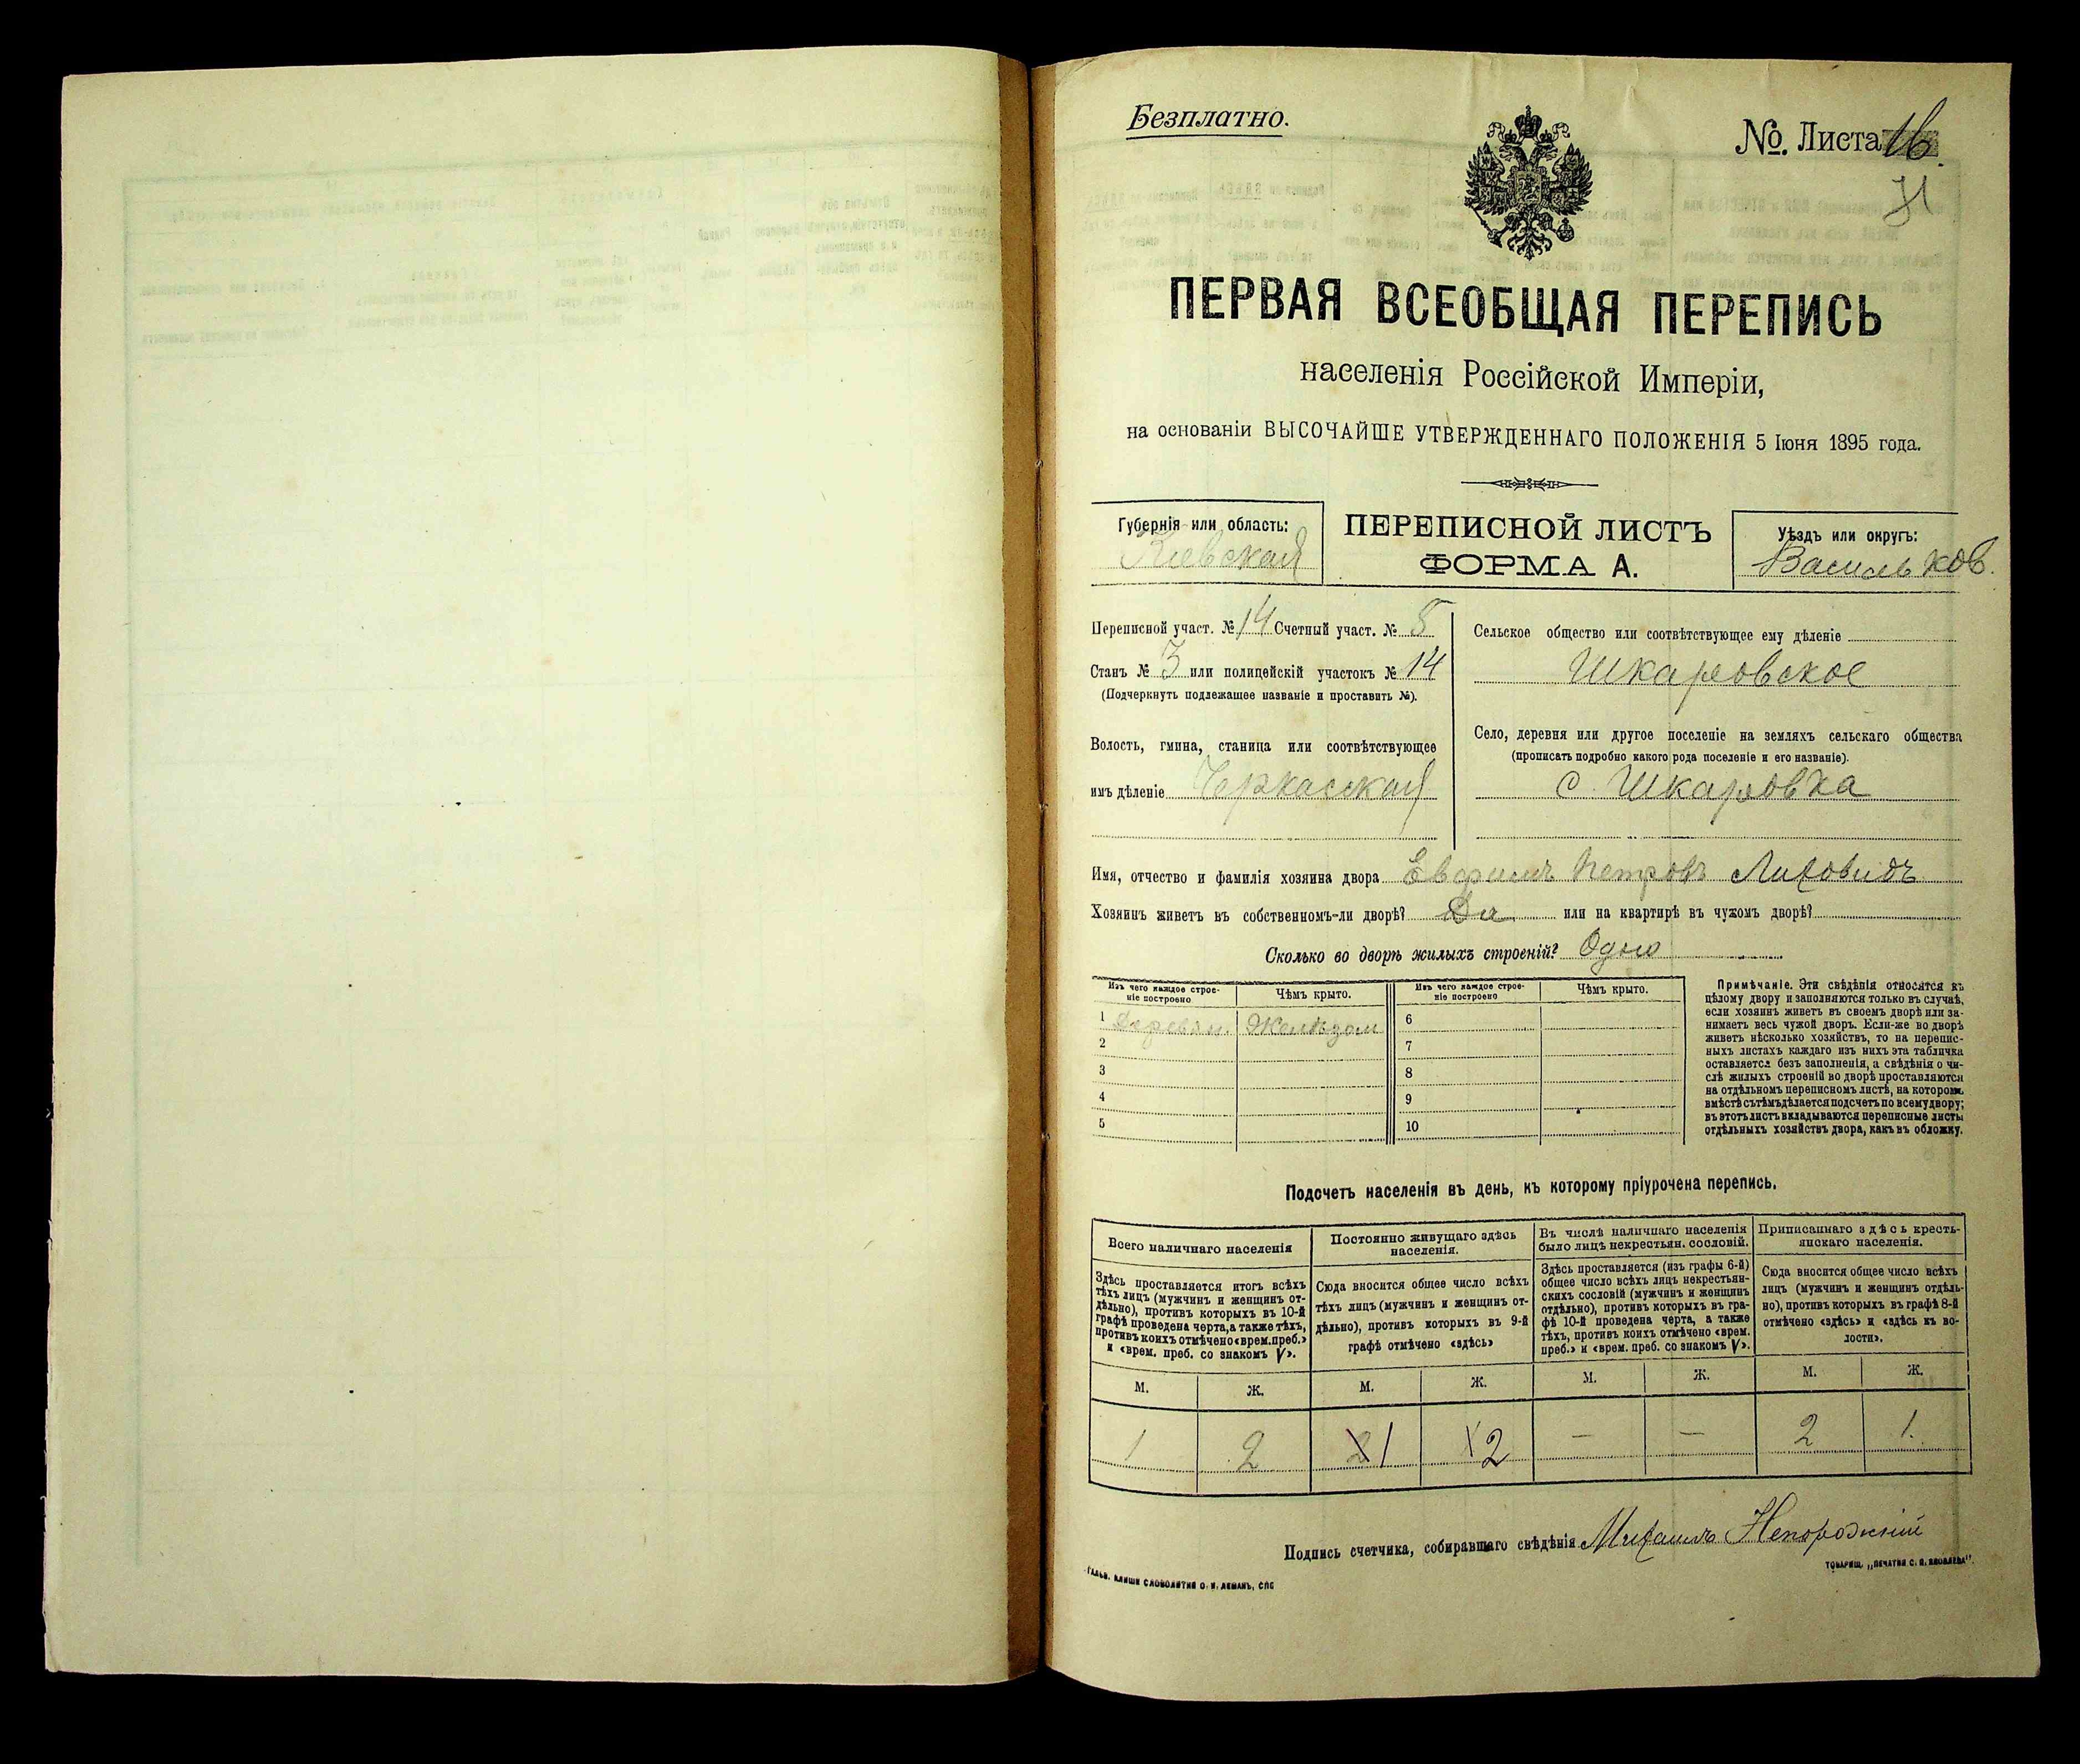 Безплатно.
№. Листа 16.
ПЕРВАЯ ВСЕОБЩАЯ ПЕРЕПИСЬ
населенія Россійской Имперіи,
на основаніи ВЫСОЧАЙШЕ УТВЕРЖДЕННАГО ПОЛОЖЕНІЯ 5 Іюня 1895 года.
Губернія или область:
Кіевская
ПЕРЕПИСНОЙ ЛИСТЪ
ФОРМА А.
Уѣздъ или округъ:
Васильков.
Переписной участ. № 14 Счетный участ. № 5
Станъ № 3 или полицейскій участокъ № 14
(Подчеркнуть подлежащее названіе и проставить №).
Волость, гмина, станица или соотвѣтствующее
имъ дѣленіе Черкасская
Сельское общество или соотвѣтствующее ему дѣленіе
Шкаровское
Село, деревня или другое поселеніе на земляхъ сельскаго общества
(прописать подробно какого рода поселеніе и его названіе).
с. Шкаровка
Имя, отчество и фамилія хозяина двора Петровъ Лиховидъ
Хозяинъ живетъ въ собственномъ-ли дворѣ? Да или на квартирѣ въ чужомъ дворѣ?
Сколько во дворѣ жилыхъ строеній? Одно
Изъ чего каждое строе-
ніе построено
Чѣмъ крыто.
Изъ чего каждое строе-
ніе построено
Чѣмъ крыто.
1 Деревян. Желѣзом 6
2 7
3 8
4 9
5 10
Примѣчаніе. Эти свѣдѣнія относятся къ
цѣлому двору и заполняются только въ случаѣ,
если хозяинъ живетъ въ своемъ дворѣ или за-
нимаетъ весь чужой дворъ. Если-же во дворѣ
живетъ нѣсколько хозяйствъ, то на перепис-
ныхъ листахъ каждаго изъ нихъ эта табличка
оставляется безъ заполненія, а свѣдѣнія о чи-
слѣ жилыхъ строеній во дворѣ проставляются
на отдѣльномъ переписномъ листѣ, на которомъ
вмѣстѣ съ тѣмъ дѣлается подсчетъ по всему двору;
въ этотъ листъ вкладываются переписные листы
отдѣльныхъ хозяйствъ двора, какъ въ обложку.
Подсчетъ населенія въ день, къ которому пріурочена перепись.
Всего наличнаго населенія
Постоянно живущаго здѣсь
населенія.
Въ числѣ наличнаго населенія
было лицъ некрестьян. сословій.
Приписаннаго здѣсь кресть-
янскаго населенія.
Здѣсь проставляется итогъ всѣхъ
тѣхъ лицъ (мужчинъ и женщинъ от-
дѣльно), противъ которыхъ въ 10-й
графѣ проведена черта, а также тѣхъ,
противъ коихъ отмѣчено «врем. преб.»
и «врем. преб. со знакомъ V».
Сюда вносится общее число всѣхъ
тѣхъ лицъ (мужчинъ и женщинъ от-
дѣльно), противъ которыхъ въ 9-й
графѣ отмѣчено «здѣсь»
Здѣсь проставляется (изъ графы 6-й)
общее число всѣхъ лицъ некрестьян-
скихъ сословій (мужчинъ и женщинъ
отдѣльно), противъ которыхъ въ гра-
фѣ 10-й проведена черта, а также
тѣхъ, противъ коихъ отмѣчено «врем.
преб.» и «врем. преб. со знакомъ V».
Сюда вносится общее число всѣхъ
лицъ (мужчинъ и женщинъ отдѣль-
но), противъ которыхъ въ графѣ 8-й
отмѣчено «здѣсь» и «здѣсь къ во-
лости».
М. Ж. М. Ж. М. Ж. М. Ж.
1 2 1 2 — — 2 1.
Подпись счетчика, собиравшаго свѣдѣнія Михаилъ Непорожній
ГАЛЬВ. КЛИШЕ СЛОВОЛИТНИ О. И. ЛЕМАНЪ, СПБ
ТОВАРИЩ. „ПЕЧАТНЯ С. П. ЯКОВЛЕВА".